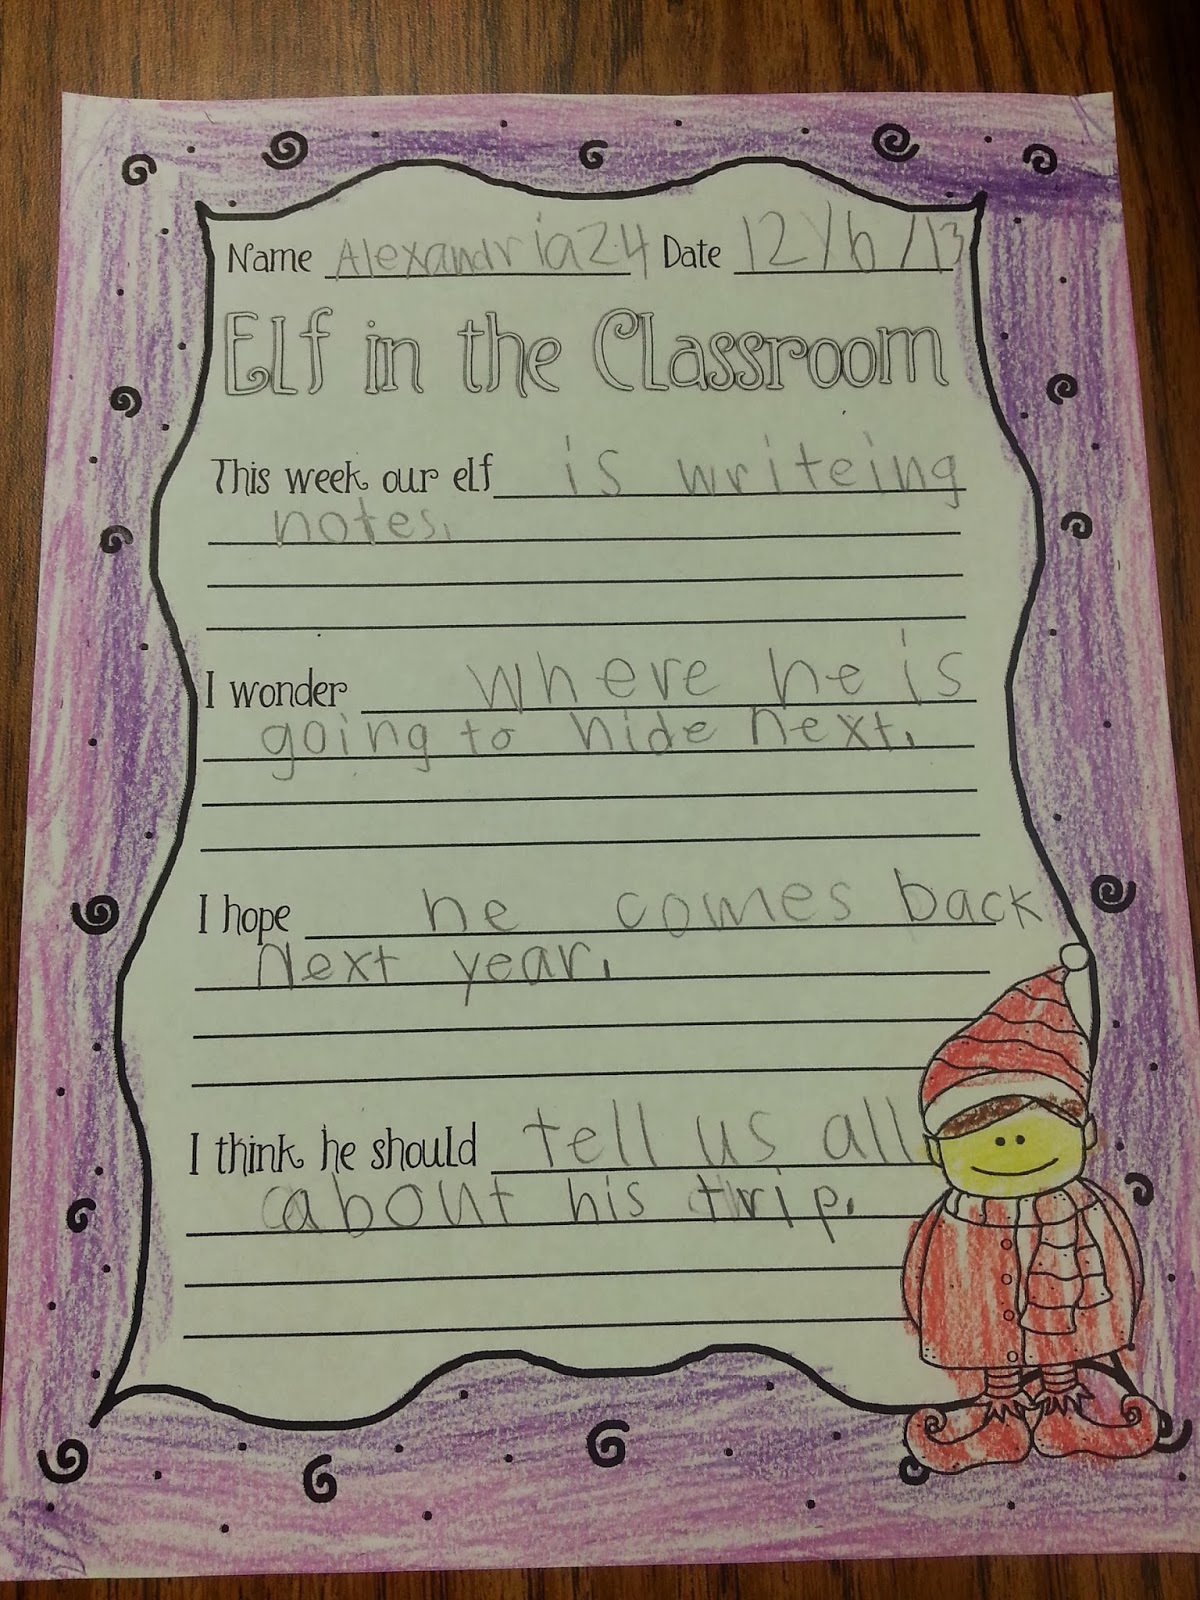 Name Alexandria 24 Date 12/6/13
Elf in the Classroom
This week our elf is writeing
notes.
I wonder where he is
going to hide next.
I hope he comes back
Next year.
I think he should tell us all
about his trip.